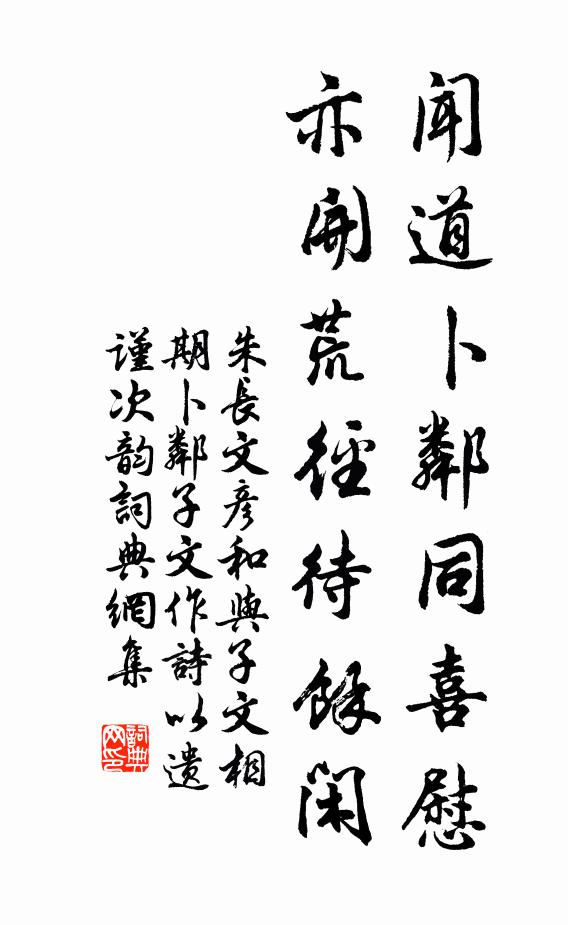 聞道卜鄰同喜慰
亦開荒徑待餘閑
朱長文彥和與子文相
期卜鄰子文作詩以遺
謹次韵詞典網集
詞典
网印